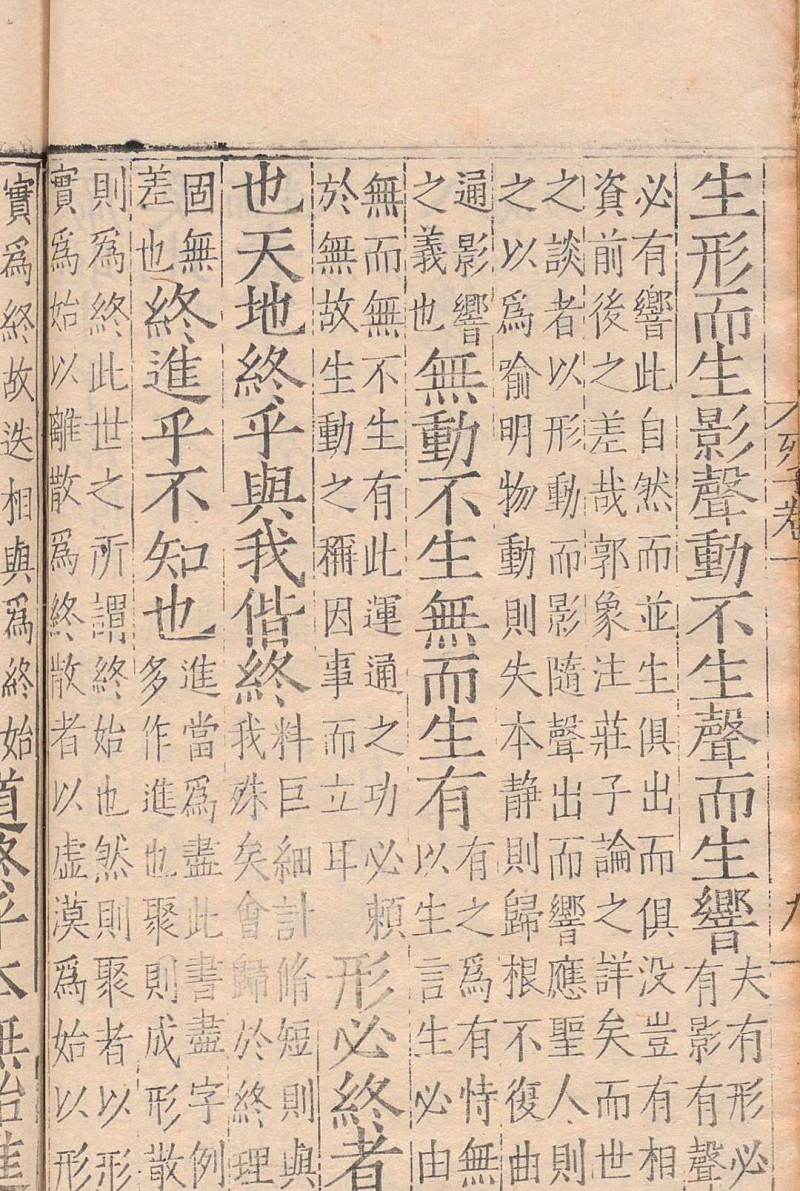 列子卷一 九
生形而生影聲動不生聲而生響夫有形必
有影有聲
必有響此自然而並生俱出而俱没豈有相
資前後之差哉郭象注莊子論之詳矣而世
之談者以形動而影隨聲出而響應聖人則
之以爲喻明物動則失本静則歸根不復曲
通影響
之義也無動不生無而生有有之爲有恃無
以生言生必由
無而無不生有此運通之功必頼
於無故生動之稱因事而立耳形必終者
也天地終乎與我偕終料巨細計脩短則與
我殊矣會歸於終理
固無
差也終進乎不知也進當爲盡此書盡字例
多作進也聚則成形散
則爲終此世之所謂終始也然則聚者以形
實爲始以離散爲終散者以虚漠爲始以形
實爲終故迭相與爲終始道終乎本無始進